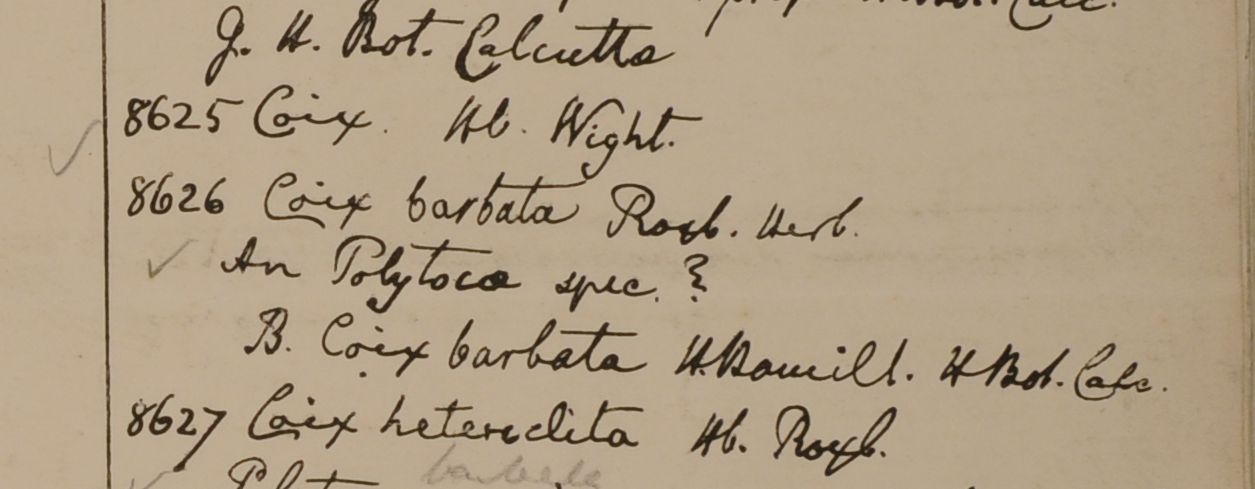 Calc.
J. H. Bot. Calcutta
8625 Coix. Hb. Wight.
8626 Coix barbata Roxb. Herb.
An Polytoca spec. ?
B. Coix barbata H. Hamill. H Bot. Calc.
8627 Coix heteroclita Hb. Roxb.